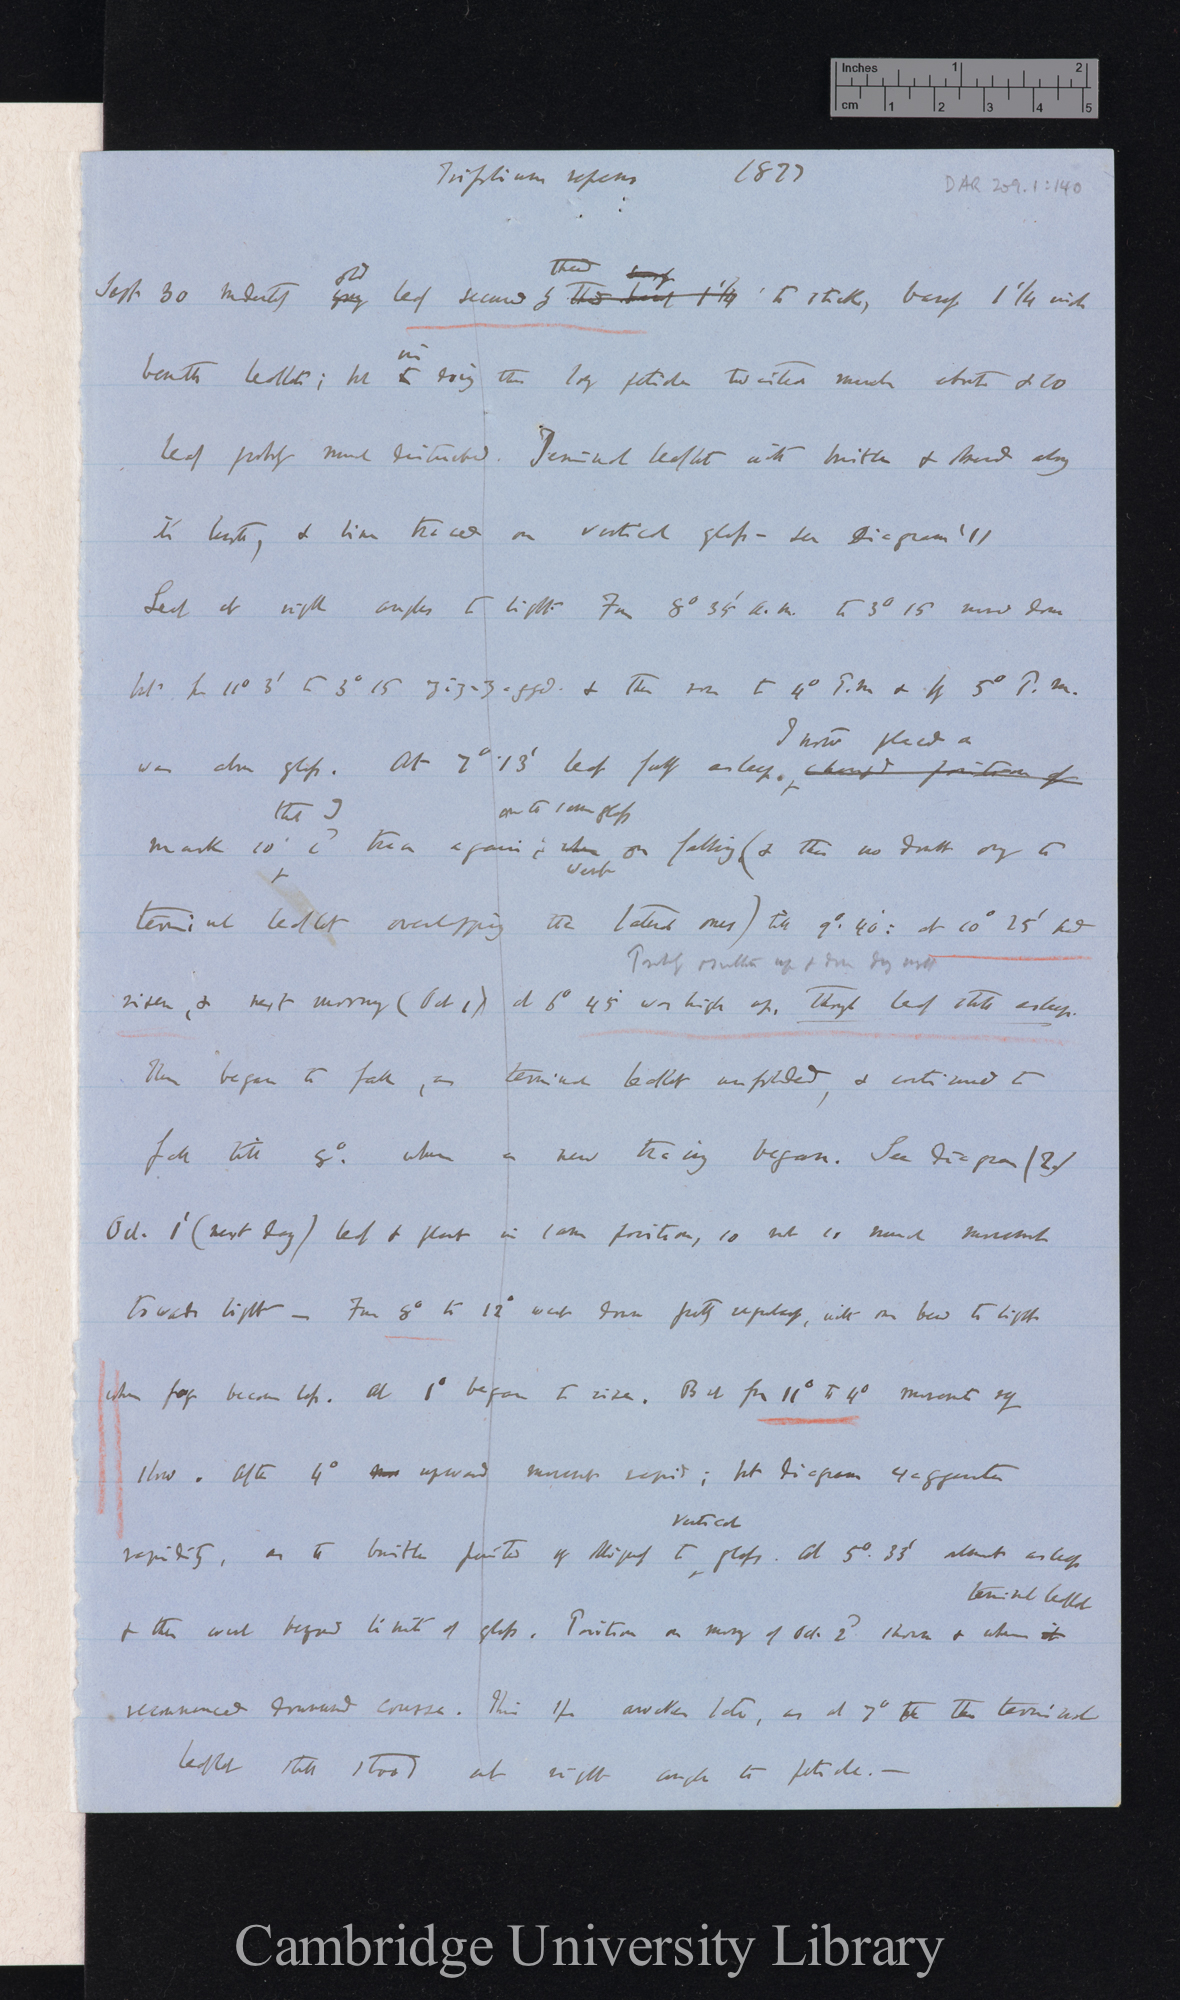 Inches 1 2
cm 1 2 3 4 5
Trifolium repens 1877
DAR 209.1:140
Sept 30 moderately old leaf secured by thread to stick, barely 1 1/4 inch
beneath leaflets; but in doing this long petiole twisted much about & so
leaf probably much disturbed. Terminal leaflet with bristle & bead along
its length, & line traced on vertical glass – See Diagram (1)
Leaf at right angles to light. From 8° 35' a.m. to 3° 15 moved down
but from 11° 3' to 3° 15 zig-zagged & then rose to 4° P.m & by 5° P.m.
was above glass. At 7° 13' leaf fully asleep,
I now placed a
mark so that I could trace again on to same glass; went on falling (& this no doubt owing to
terminal leaflet overlapping the lateral ones) till 9° 40': at 10° 25' had
Probably oscillates up & down during night
risen, & next morning (Oct 1) at 6° 45' was high up, though leaf still asleep.
Then began to fall, as terminal leaflet unfolded, & continued to
fall till 8°. when a new tracing began. See diagram (2)
Oct. 1' (next day) leaf & plant in same position, so not so much movement
towards light – From 8° to 12° went down pretty regularly, with one bend to light
when fog became less. At 1° began to rise. But from 11° to 4° movements very
slow. After 4° upward movement rapid; but diagram exaggerates
rapidity, as the bristle pointed up obliquely to vertical glass. At 5°. 33' almost asleep
& then went beyond limits of glass. Position on morning of Oct. 2° shown & when terminal leaflet
recommenced downward course. This awoke late, as at 7° the terminal
leaflet still stood at right angle to petiole. —
Cambridge University Library